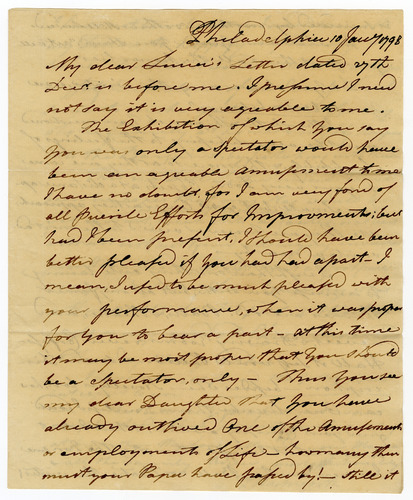 Philadelphia 10 Jany 1798
My dear Letter dated 27th
Decr. is before me. I presume I need
not say it is very agreable to me.
The Exhibition of which you say
you was only a Spectator would have
been an agreable Amusement to me
I have no doubt, for I am very fond of
all Puerile Efforts for Improvments; but
had I been present, I should have been
better pleased if you had had a part – I
mean, I used to be much pleased with
your performance, when it was proper
for you to bear a part – at this time
it may be most proper that you should
be a Spectator, only – Thus you see
my dear Daughter that you have
already outlived One of the Amusements
or employments of Life – how many then
must your Papa have passed by! – Still it